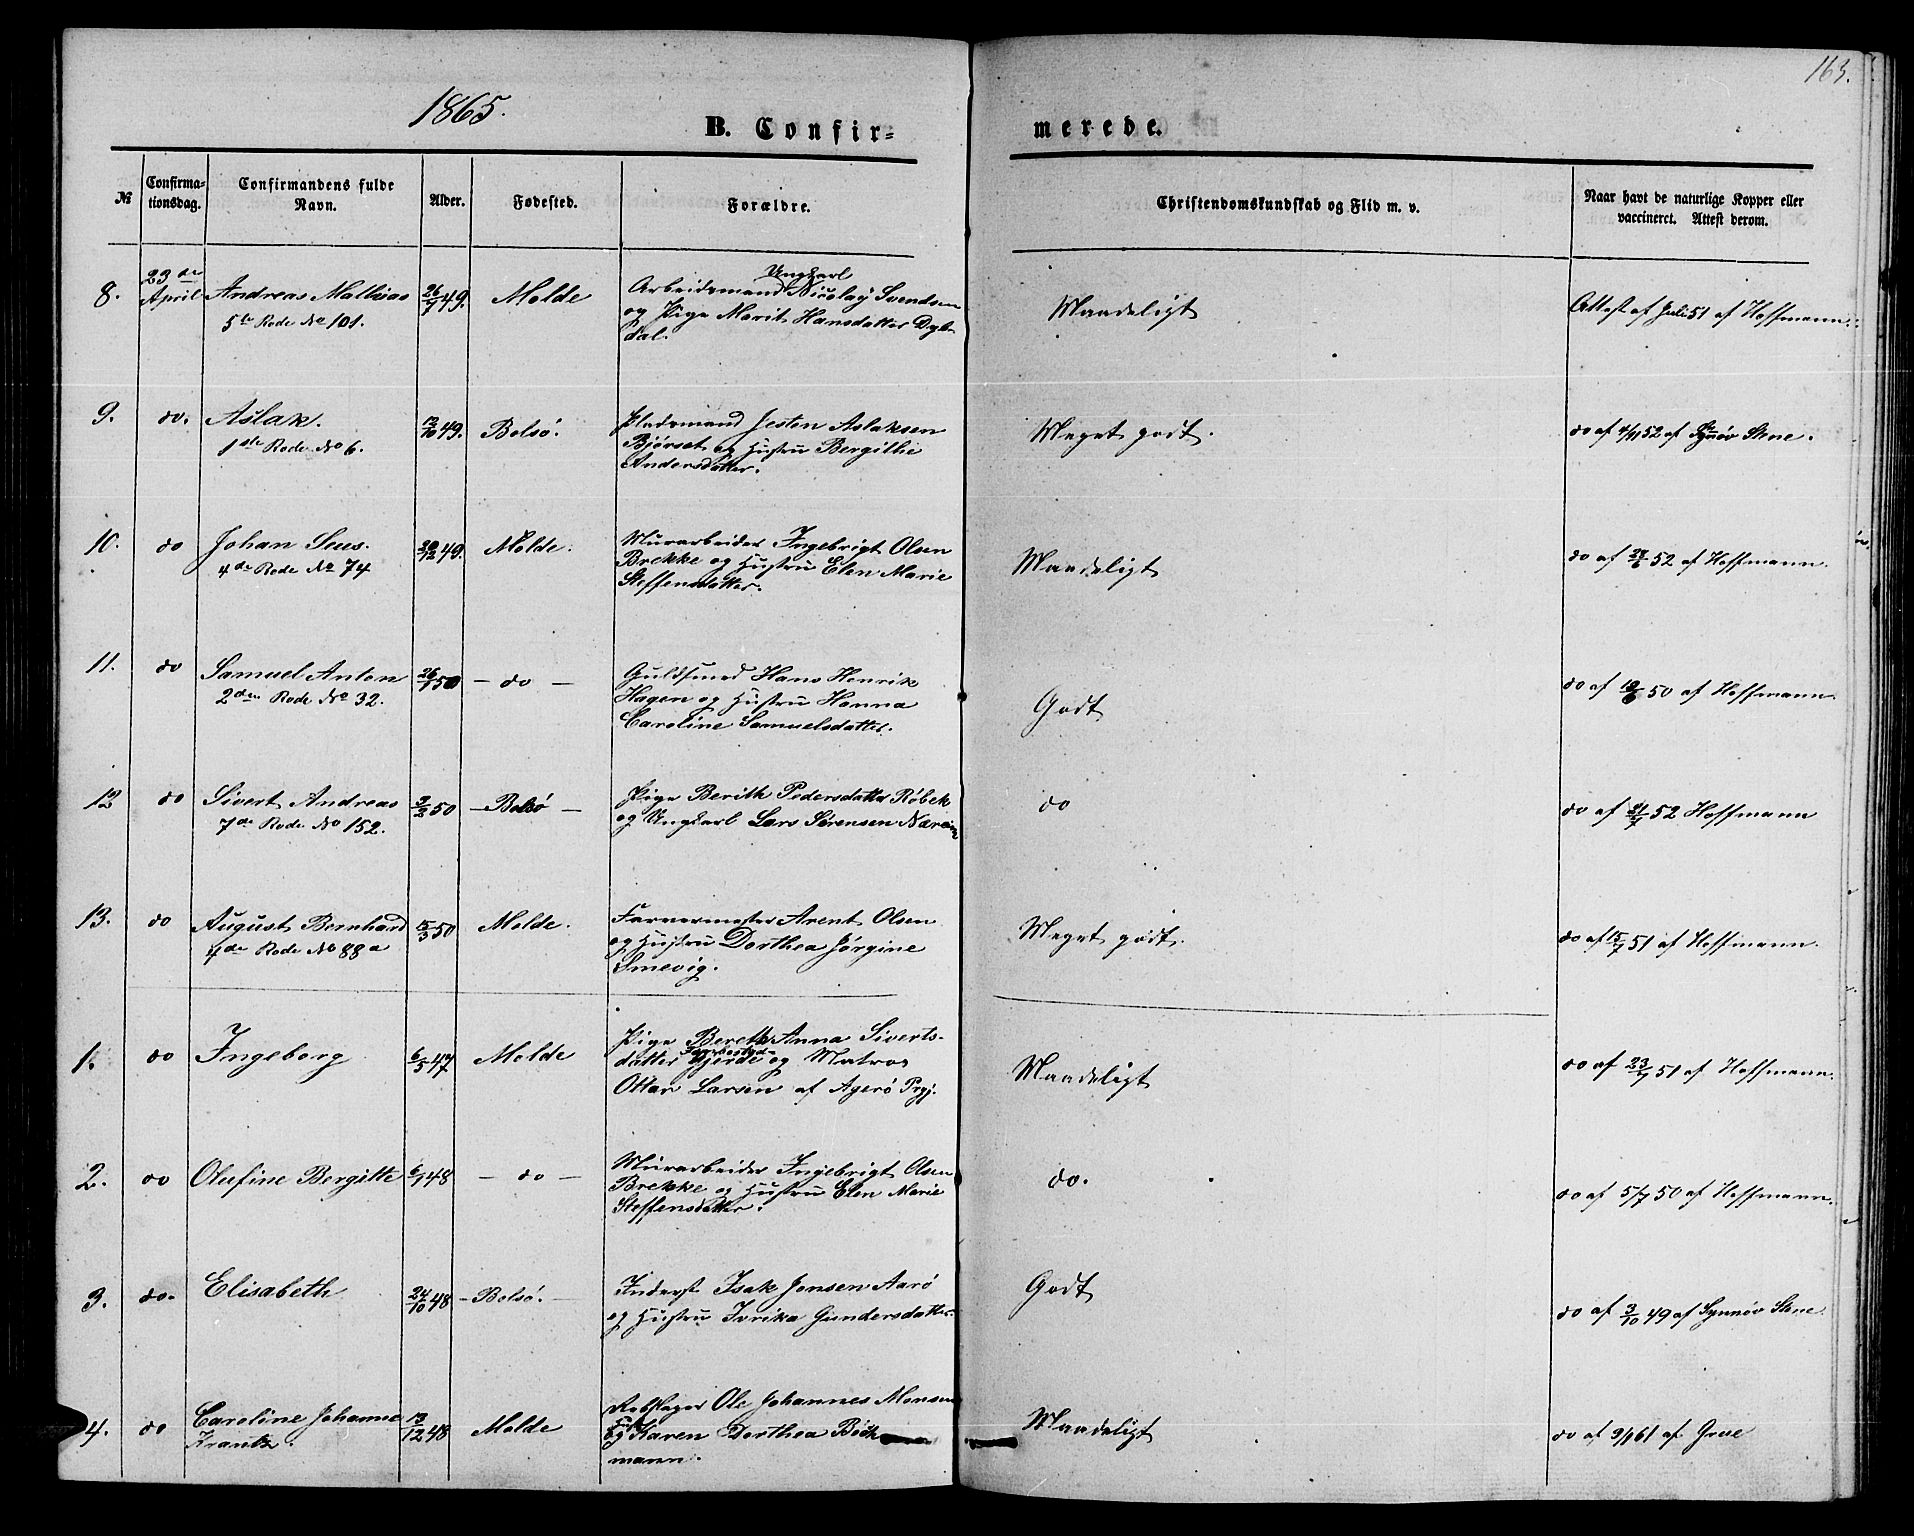 163.
1865.
B. Confir-
merede.
№
Confirma-
tionsdag.
Confirmandens fulde
Navn.
Alder.
Fødested.
Forældre.
Christendomskundskab og Flid m. v.
Naar havt de naturlige Kopper eller
vaccineret. Attest derom.
8. 23de April Andreas Mathias 26/7 49. Molde
5te Rode No 101.
Ungkarl
Arbeidsmand Nicolay Svendsen
og Pige Marit Hansdatter
dal.
Maadeligt
Attest af Juli 51 af Hoffmann.
9. do. Aslak. 12/10 49. Bolsø.
1ste Rode No 6.
Pladsmand Jesten Aslaksen
Bjørset og Hustru Bergithe
Andersdatter.
Meget godt.
do af 4/11 52 af Synnøv Stene.
10. do Johan Seus. 20/12 49. Molde.
4de Rode No 74
Murarbeider Ingebrigt Olsen
Brekke og Hustru Elen Marie
Steffensdatter.
Maadeligt
do af 28/6 52 af Hoffmann.
11. do Samuel Anton 26/1 50 - do -
2den Rode No 32.
Guldsmed Hans Henrik
Hagen og Hustru Hanna
Caroline Samuelsdatter.
Godt
do af 18/6 50 af Hoffmann.
12 do Sivert Andreas 3/2 50 - Bolsø -
7de Rode No 152.
Pige Berith Pedersdatter Røbek
og Ungkarl Lars Sørensen
do
do af 21/7 52 Hoffmann
13. do August Bernhard 15/3 50 Molde.
4de Rode No 88 a
Farvermester Arent Olsen
og Hustru Dorthea Jørgine
Smevig.
Meget godt.
do af 15/7 51 af Hoffmann.
1. do Ingeborg 6/5 47 Molde
Pige Bereth Anna Siverts-
datter Gjerde og Matros
Ottar Larsen af Agerø Prgj.
Maadeligt
do af 23/7 51 af Hoffmann.
2. do Olufine Bergitte 6/1 48 - do -
Murarbeider Ingebrigt Olsen
Brekke og Hustru Elen Marie
Steffensdatter.
do.
do af 5/7 50 af Hoffmann.
3. do. Elisabeth 24/10 48 - Bolsø. -
Inderst Isak Jonsen Aarø
og Hustru Ivrika Gundersdatter.
Godt
do af 3/10 49 af Synnøv Stene.
4. do Caroline Johanne 13/12 48 Molde
Krantz.
Rebslager Ole Johannes Monsen
og Karen Dorthea Bøck
mann.
Maadeligt
do af 9/1 61 af Grue